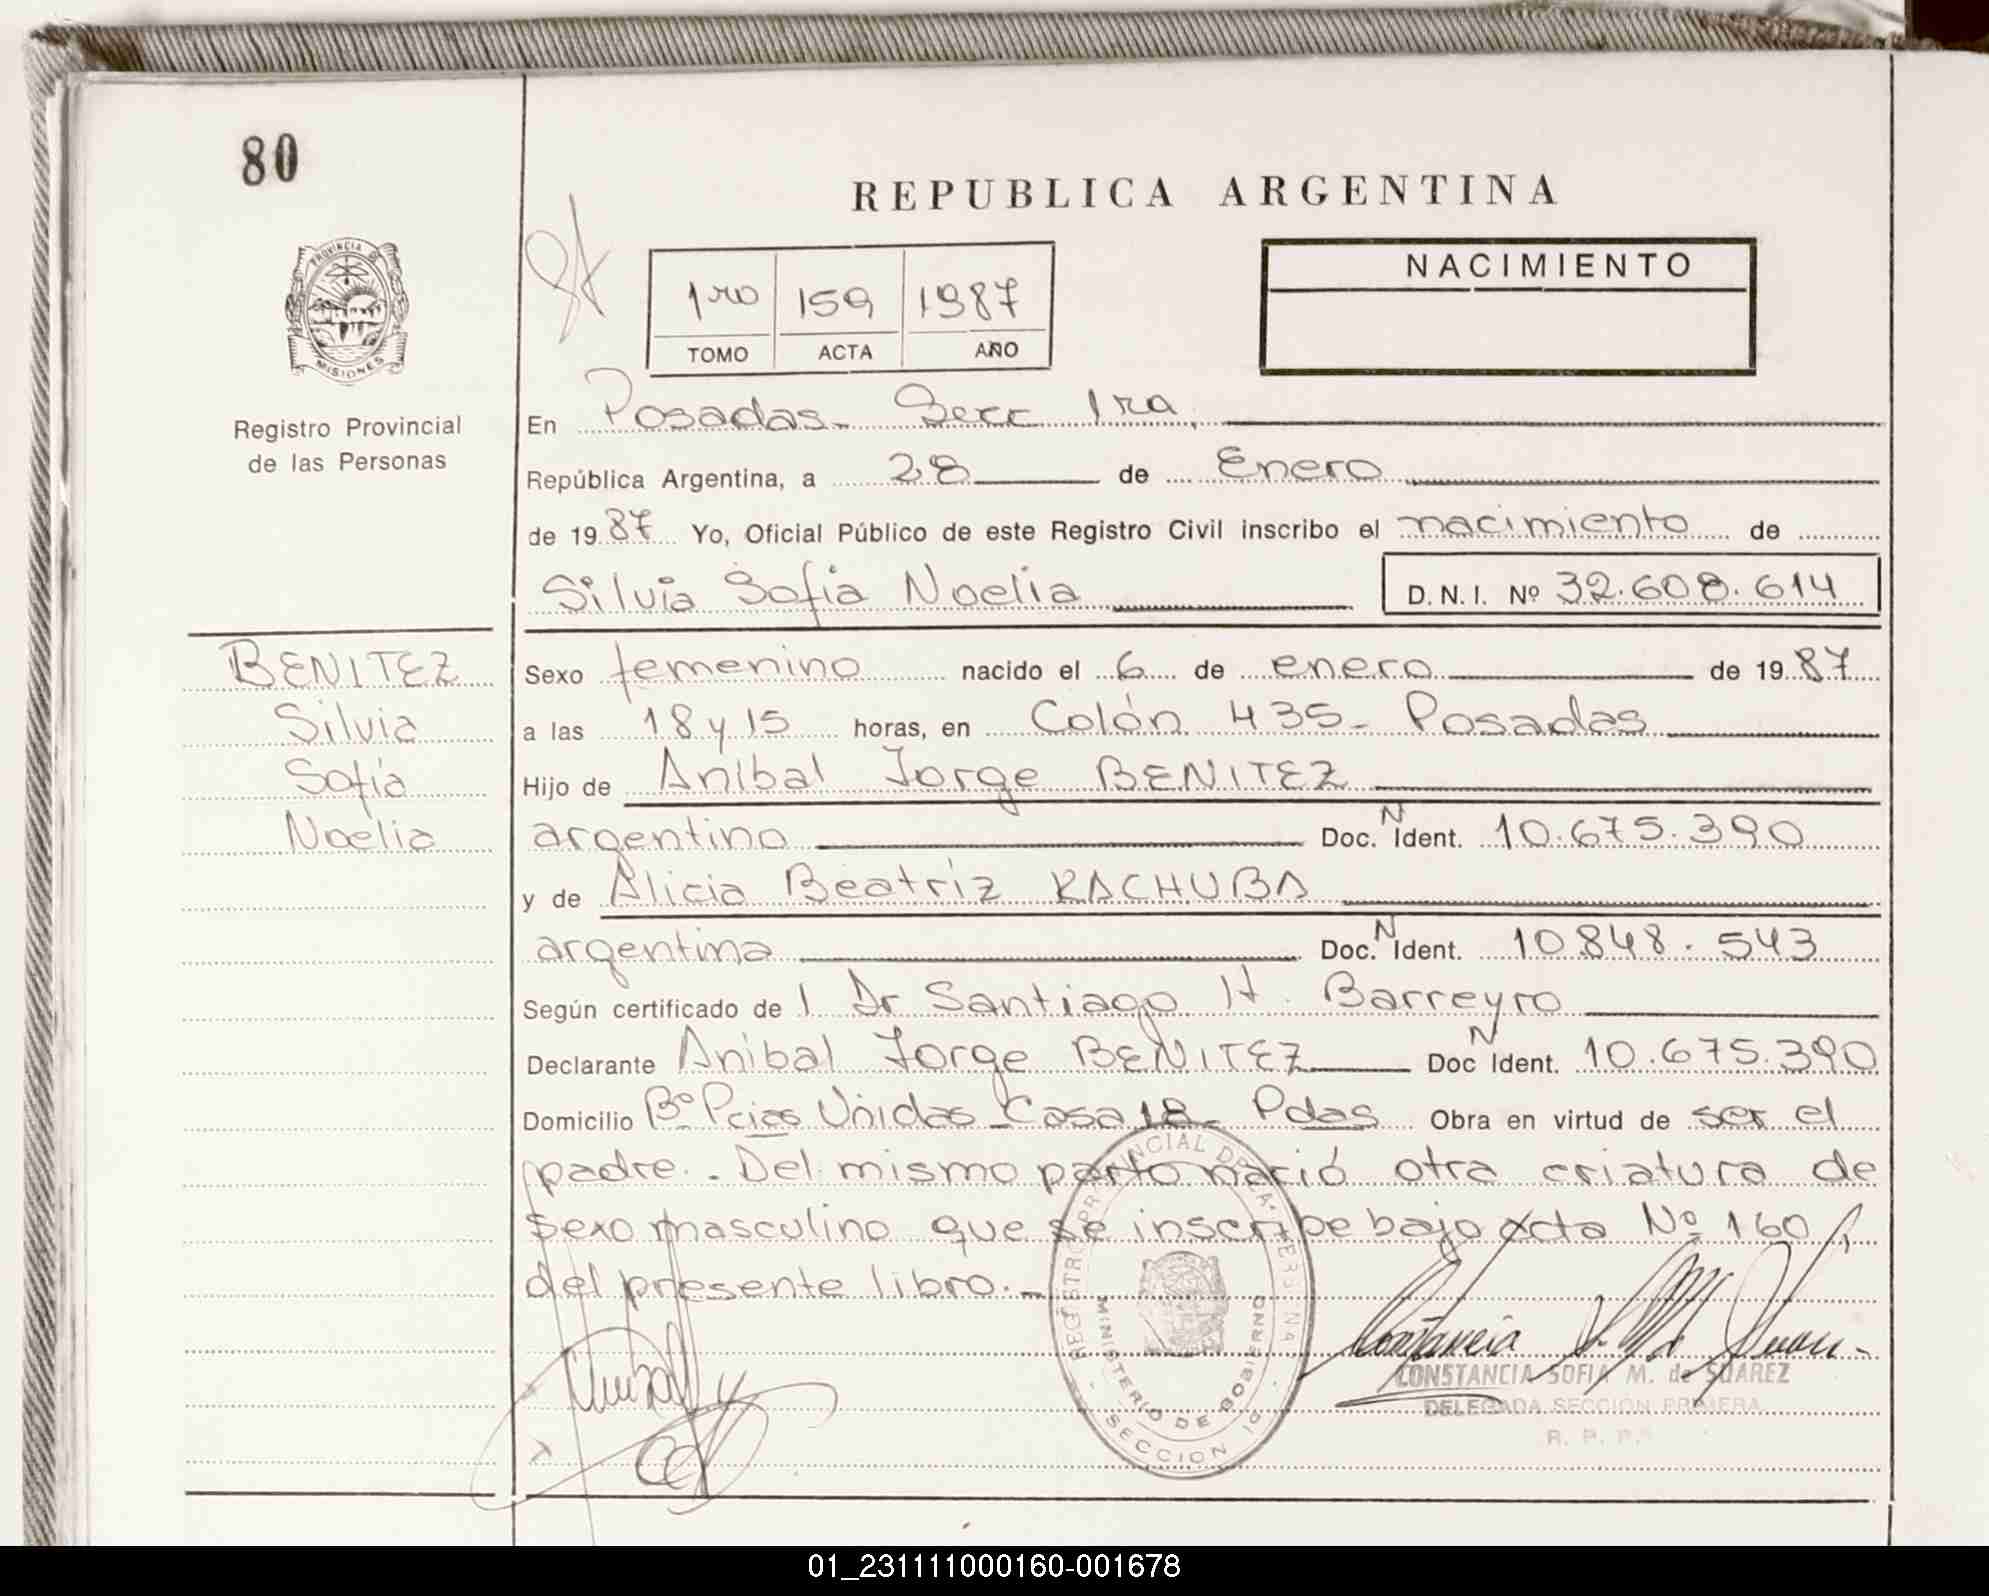 80
REPUBLICA ARGENTINA
PROVINCIA DE
MISIONES
1ro 159 1987
TOMO ACTA AÑO
NACIMIENTO
Registro Provincial
de las Personas
En Posadas - Secc 1ra
República Argentina, a 28 de Enero
de 1987 Yo, Oficial Público de este Registro Civil inscribo el nacimiento de
Silvia Sofia Noelia D.N.I. Nº 32.608.614
BENITEZ
Silvia
Sofía
Noelia
Sexo femenino nacido el 6 de enero de 1987
a las 18 y 15 horas, en Colón 435 - Posadas
Hijo de Aníbal Jorge BENITEZ
argentino Doc. N Ident. 10.675.390
y de Alicia Beatríz KACHUBA
argentina Doc. N Ident. 10.848.543
Según certificado de l Dr Santiago H. Barreyro
Declarante Anibal Jorge BENITEZ Doc N Ident. 10.675.390
Domicilio Bº Pcias Unidas - Casa 18 - Pdas Obra en virtud de ser el
padre. - Del mismo parto nació otra criatura de
sexo masculino que se inscribe bajo acta Nº 160
del presente libro. -
REGISTRO PROVINCIAL DE LAS PERSONAS
MINISTERIO DE GOBIERNO
SECCION 1a
CONSTANCIA SOFIA M. de SUAREZ
DELEGADA SECCION PRIMERA
R. P. P.
01_231111000160-001678